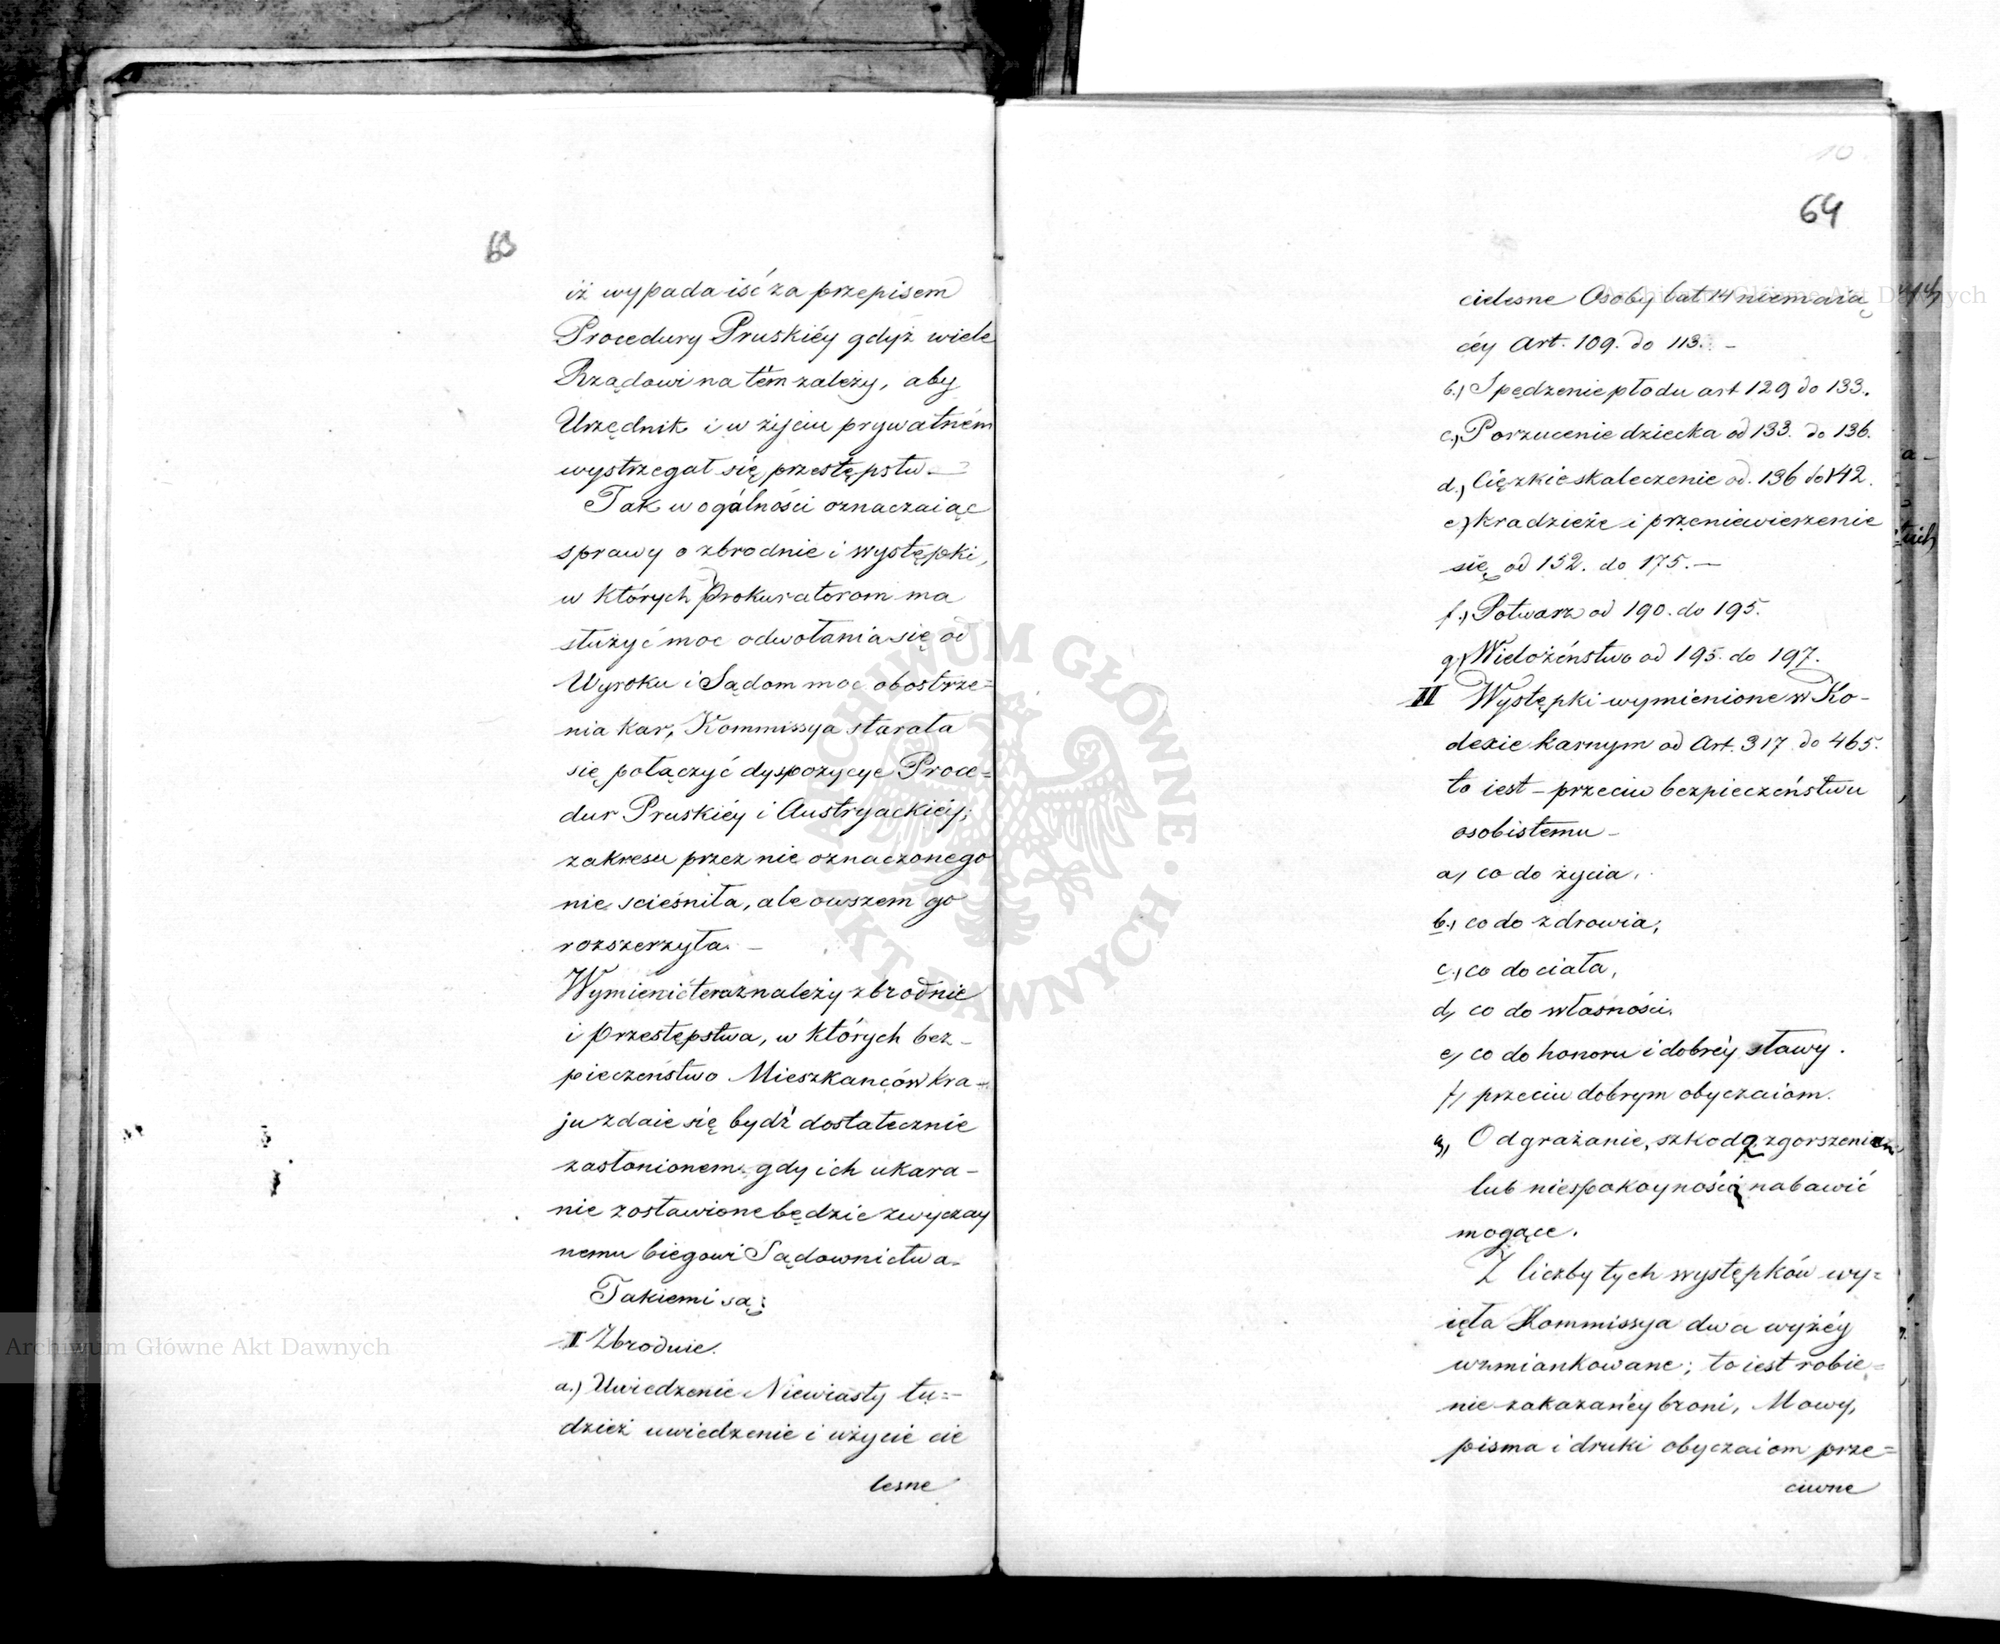 63
iż wypada iść za przepisem
Procedury Pruskiéy gdyż wiele
Rządowi na tém zależy, aby
Urzędnik i w życiu prywatném
wystrzegał się przestępstw. —
Tak w ogólności oznaczaiąc
sprawy o zbrodnie i występki,
w których Prokuratorom ma
służyć moc odwołania się od
Wyroku i Sądom moc obostrze=
nia kar, Kommissya starała
się połączyć dyspozycye Proce=
dur Pruskiéy i Austryackiéy;
zakresu przez nie oznaczonego
nie scieśniła, ale owszem go
rozszerzyła. —
Wymienić teraz należy zbrodnie
i przestępstwa, w których bez-
pieczeństwo Mieszkańców kra-
ju zdaie się bydź dostatecznie
zasłonionem, gdy ich ukara-
nie zostawione będzie zwyczay
nemu biegowi Sądownictwa.
Takiemi są:
I Zbrodnie.
a.) Uwiedzenie Niewiasty tu=
dzież uwiedzenie i użycie cie
lesne
10.
64
cielesne Osoby lat 14 niemaią
céy Art. 109. do 113. —
b.) Spędzenie płodu art 129 do 133.
c.) Porzucenie dziecka od 133. do 136.
d.) Ciężkie skaleczenie od. 136 do 142.
e.) kradzieże i przeniewierzenie
się od 152. do 175. —
f.) Potwarz od 190. do 195.
g.) Wielożéństwo od 195. do 197.
II Występki wymienione w Ko-
dexie karnym od Art. 317 do 465.
to iest – przeciw bezpieczeństwu
osobistemu –
a, co do życia,
b., co do zdrowia,
c., co do ciała,
d, co do własności.
e, co do honoru i dobréy sławy.
f, przeciw dobrym obyczaiom.
g, Odgrażanie, szkodą zgorszeniem
lub niespokoynością nabawić
mogące.
Z liczby tych występków wy=
ięła Kommissya dwa wyżéy
wzmiankowane; to iest robie=
nie zakazanéy broni, Mowy,
pisma i druki obyczaiom prze=
ciwne
Archiwum Główne Akt Dawnych
Archiwum Główne Akt Dawnych
ARCHIWUM GŁÓWNE · AKT DAWNYCH ·